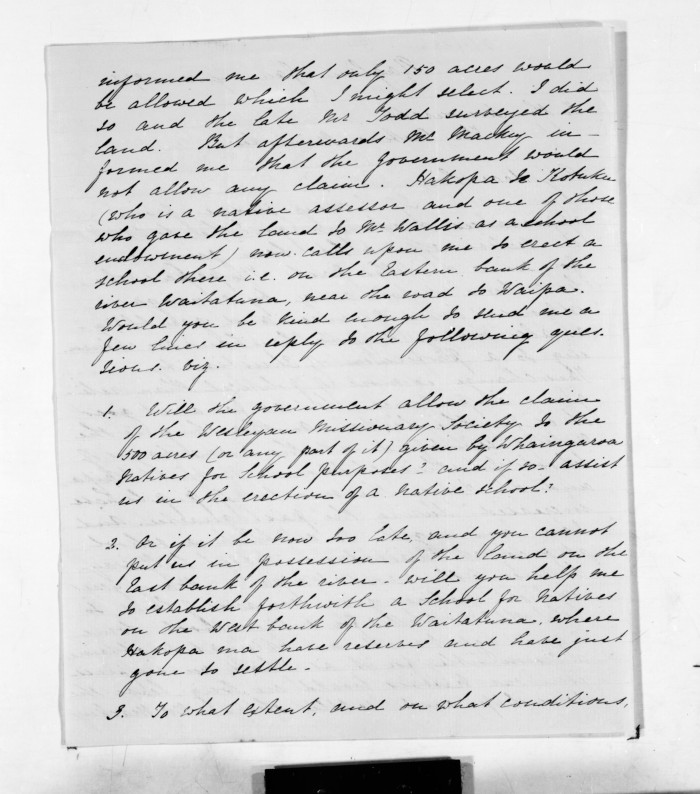 informed me that only 150 acres would
be allowed which I might select. I did
so and the late Mr Todd surveyed the
land. But afterwards Mr Mackay in-
formed me that the Government would
not allow any claim. Hakopa te Kotuku
(who is a native assessor and one of those
who gave the land to Mr Wallis as a school
endowment) now calls upon me to erect a
school there i.e. on the Eastern bank of the
river Waitatuna, near the road to Waipa.
Would you be kind enough to send me a
few lines in reply to the following ques
tions. viz.
1. Will the Government allow the claim
of the Wesleyan Missionary Society to the
500 acres (or any part of it) given by Whaingaroa
Natives for School purposes? and if so assist
us in the erection of a native school?
2. Or if it be now too late, and you cannot
put us in possession of the land on the
East bank of the river - will you help me
to establish forthwith a School for Natives
on the West bank of the Waitatuna, where
Hakopa ma have reserves and have just
gone to settle -
3. To what extent, and on what conditions,